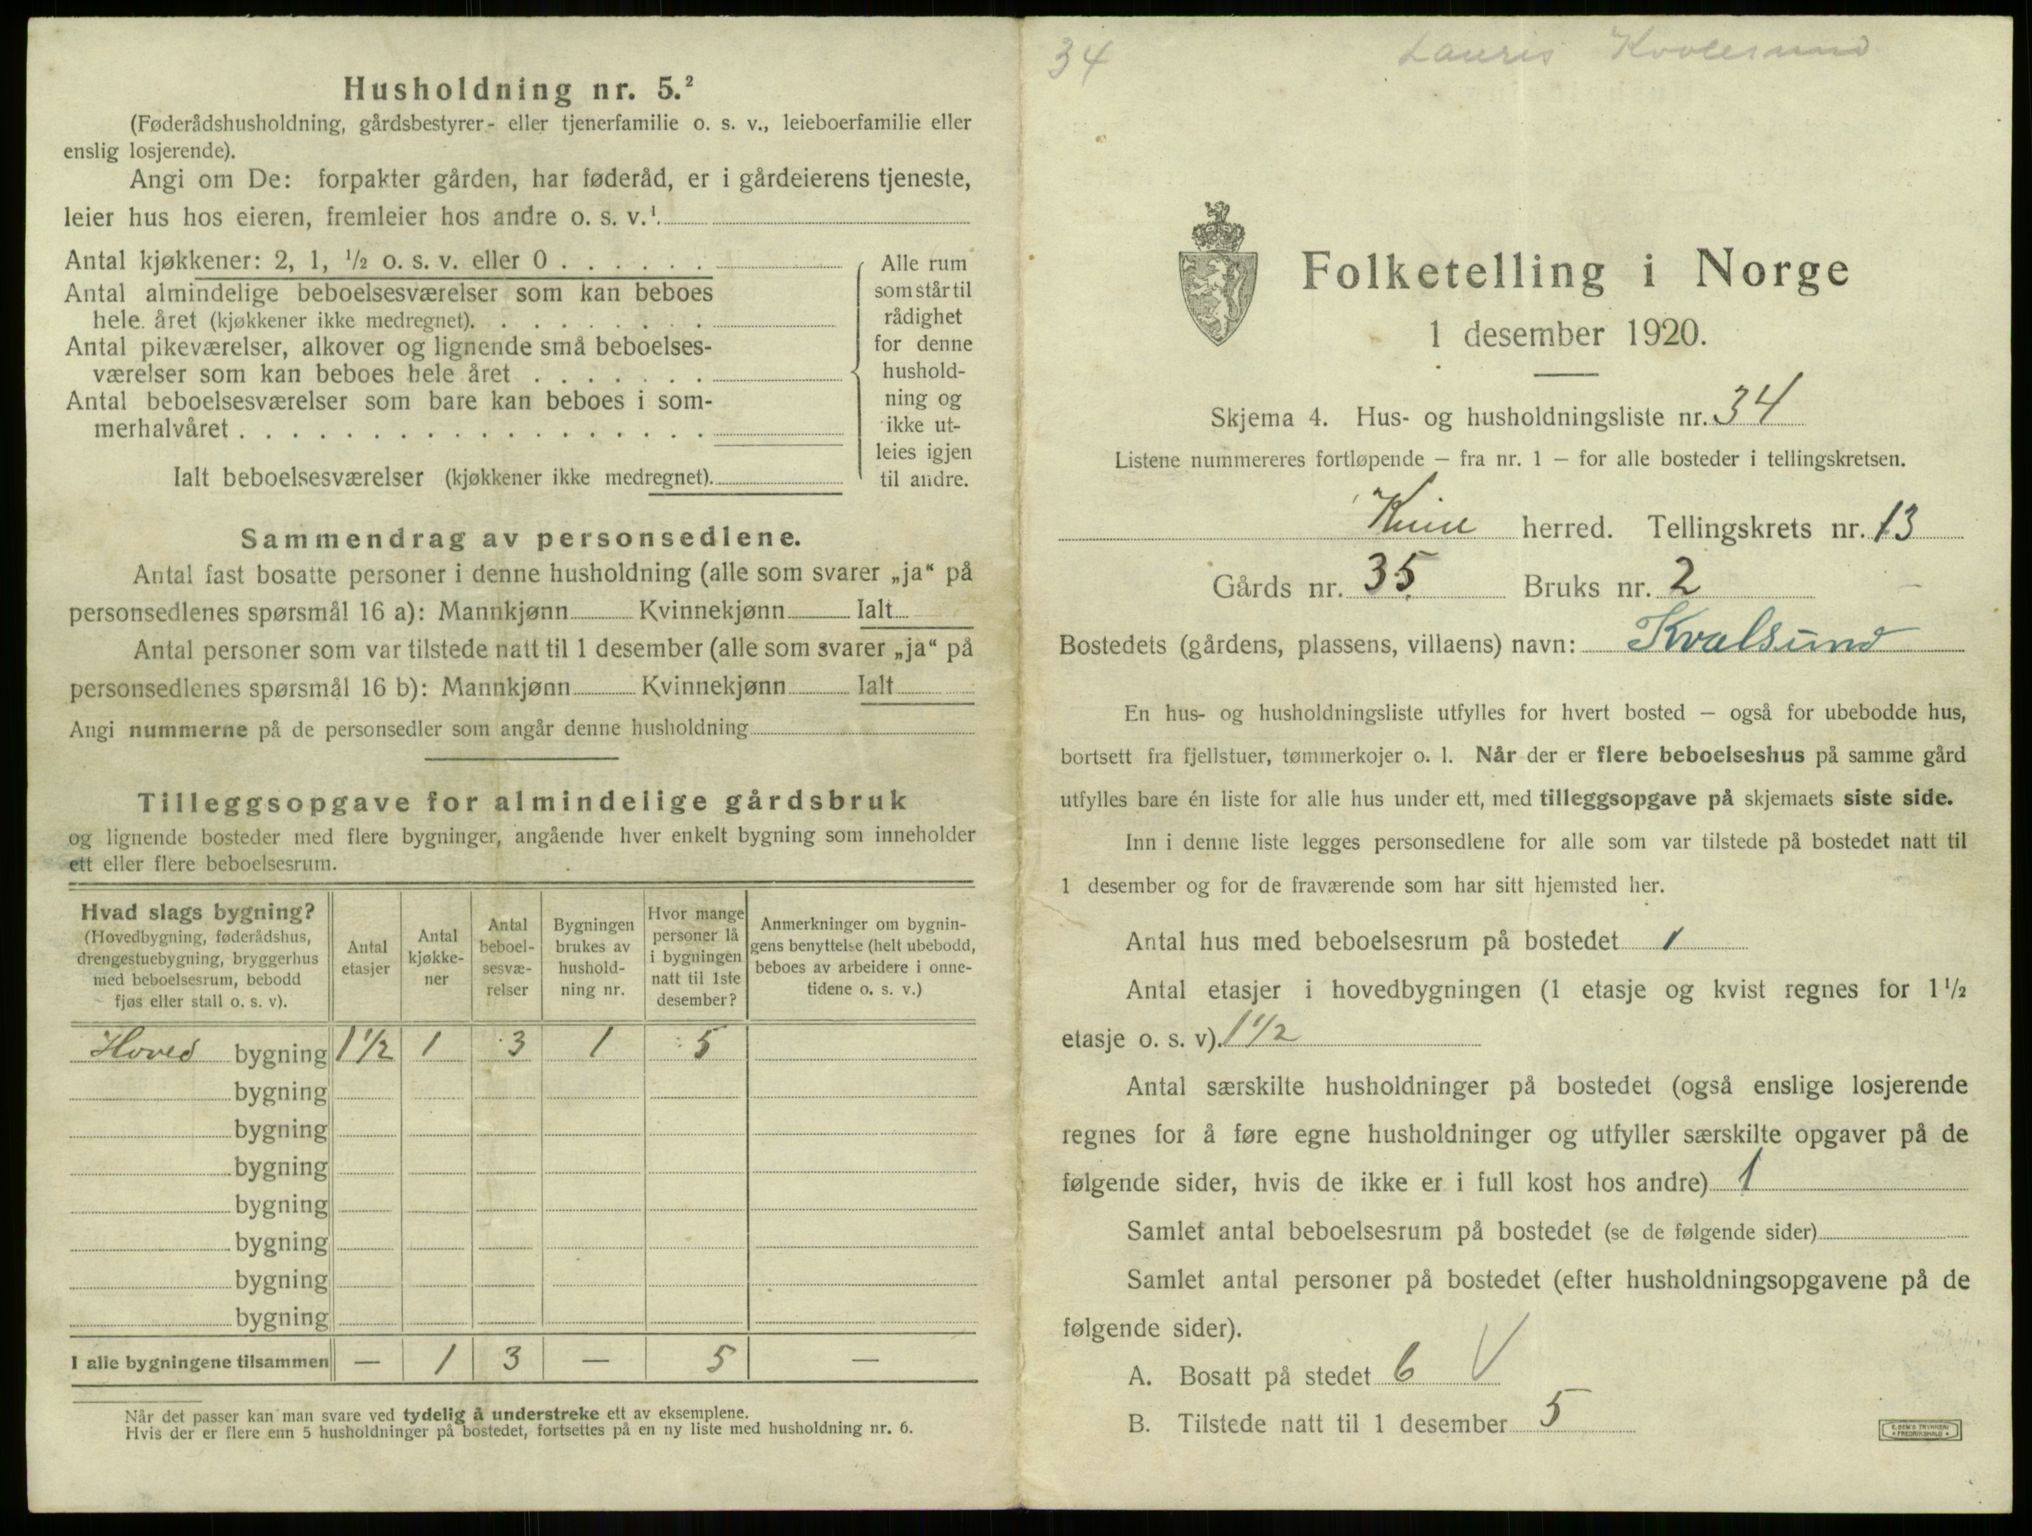 Husholdning nr. 5.²
(Føderådshusholdning, gårdsbestyrer- eller tjenerfamilie o. s. v., leieboerfamilie eller
enslig losjerende).
Angi om De: forpakter gården, har føderåd, er i gårdeierens tjeneste,
leier hus hos eieren, fremleier hos andre o. s. v.¹
Antal kjøkkener: 2, 1, ½ o. s. v. eller 0
Antal almindelige beboelsesværelser som kan beboes
hele året (kjøkkener ikke medregnet).
Antal pikeværelser, alkover og lignende små beboelses-
værelser som kan beboes hele året
Antal beboelsesværelser som bare kan beboes i som-
merhalvåret
Ialt beboelsesværelser (kjøkkener ikke medregnet).
Alle rum
som står til
rådighet
for denne
hushold-
ning og
ikke ut-
leies igjen
til andre.
Sammendrag av personsedlene.
Antal fast bosatte personer i denne husholdning (alle som svarer „ja“ på
personsedlenes spørsmål 16 a): Mannkjønn Kvinnekjønn Ialt
Antal personer som var tilstede natt til 1 desember (alle som svarer „ja“ på
personsedlenes spørsmål 16 b): Mannkjønn Kvinnekjønn Ialt
Angi nummerne på de personsedler som angår denne husholdning
Tilleggsopgave for almindelige gårdsbruk
og lignende bosteder med flere bygninger, angående hver enkelt bygning som inneholder
ett eller flere beboelsesrum.
Hvad slags bygning?
(Hovedbygning, føderådshus,
drengestuebygning, bryggerhus
med beboelsesrum, bebodd
fjøs eller stall o. s. v).
Antal
etasjer
Antal
kjøkke-
ner
Antal
beboel-
sesvæ-
relser
Bygningen
brukes av
hushold-
ning nr.
Hvor mange
personer lå
i bygningen
natt til 1ste
desember?
Anmerkninger om bygnin-
gens benyttelse (helt ubebodd,
beboes av arbeidere i onne-
tidene o. s. v.)
Hoved bygning 1½ 1 3 1 5
bygning
bygning
bygning
bygning
bygning
bygning
bygning
I alle bygningene tilsammen — 1 3 — 5 —
Når det passer kan man svare ved tydelig å understreke ett av eksemplene.
Hvis der er flere enn 5 husholdninger på bostedet, fortsettes på en ny liste med husholdning nr. 6.
34 Lauris
Folketelling i Norge
1 desember 1920.
Skjema 4. Hus- og husholdningsliste nr. 34
Listene nummereres fortløpende – fra nr. 1 – for alle bosteder i tellingskretsen.
Kinn herred. Tellingskrets nr. 13
Gårds nr. 35 Bruks nr. 2
Bostedets (gårdens, plassens, villaens) navn: Kvalsund
En hus- og husholdningsliste utfylles for hvert bosted – også for ubebodde hus,
bortsett fra fjellstuer, tømmerkojer o. l. Når der er flere beboelseshus på samme gård
utfylles bare én liste for alle hus under ett, med tilleggsopgave på skjemaets siste side.
Inn i denne liste legges personsedlene for alle som var tilstede på bostedet natt til
1 desember og for de fraværende som har sitt hjemsted her.
Antal hus med beboelsesrum på bostedet 1
Antal etasjer i hovedbygningen (1 etasje og kvist regnes for 1½
etasje o. s. v). 1½
Antal særskilte husholdninger på bostedet (også enslige losjerende
regnes for å føre egne husholdninger og utfyller særskilte opgaver på de
følgende sider, hvis de ikke er i full kost hos andre) 1
Samlet antal beboelsesrum på bostedet (se de følgende sider)
Samlet antal personer på bostedet (efter husholdningsopgavene på de
følgende sider).
A. Bosatt på stedet 6 V
B. Tilstede natt til 1 desember 5